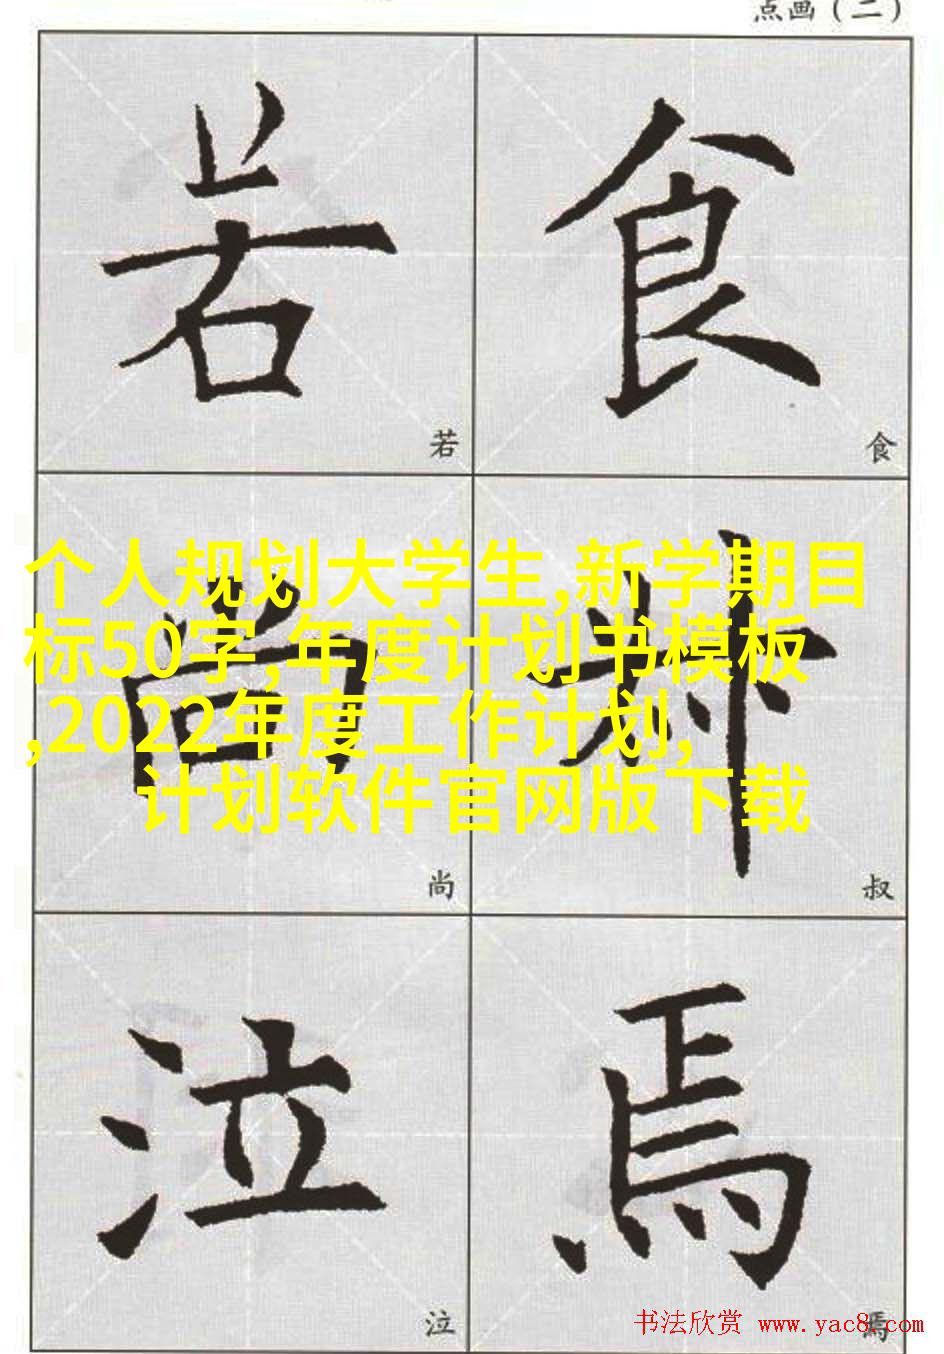 点画（二）
若 食
若 食
个人规划大学生,新学期目
标50字,年度计划书模板
,2022年度工作计划,
计划软件官网版下载
尚 叔
尚 叔
泣 焉
泣 焉
书法欣赏 www.yac8.com